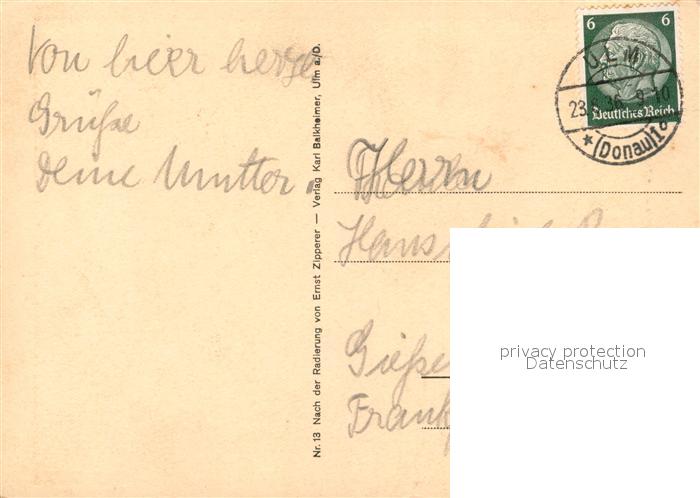 Von hier herzl
Grüße
Deine Mutter.
Nr. 13 Nach der Radierung von Ernst Zipperer — Verlag Karl Balkheimer, Ulm a./D.
6 6
Deutsches Reich
ULM
23. 36. 9-10
★ (Donau) 1
Herrn
Hans
Gieße
Frank
privacy protection
Datenschutz